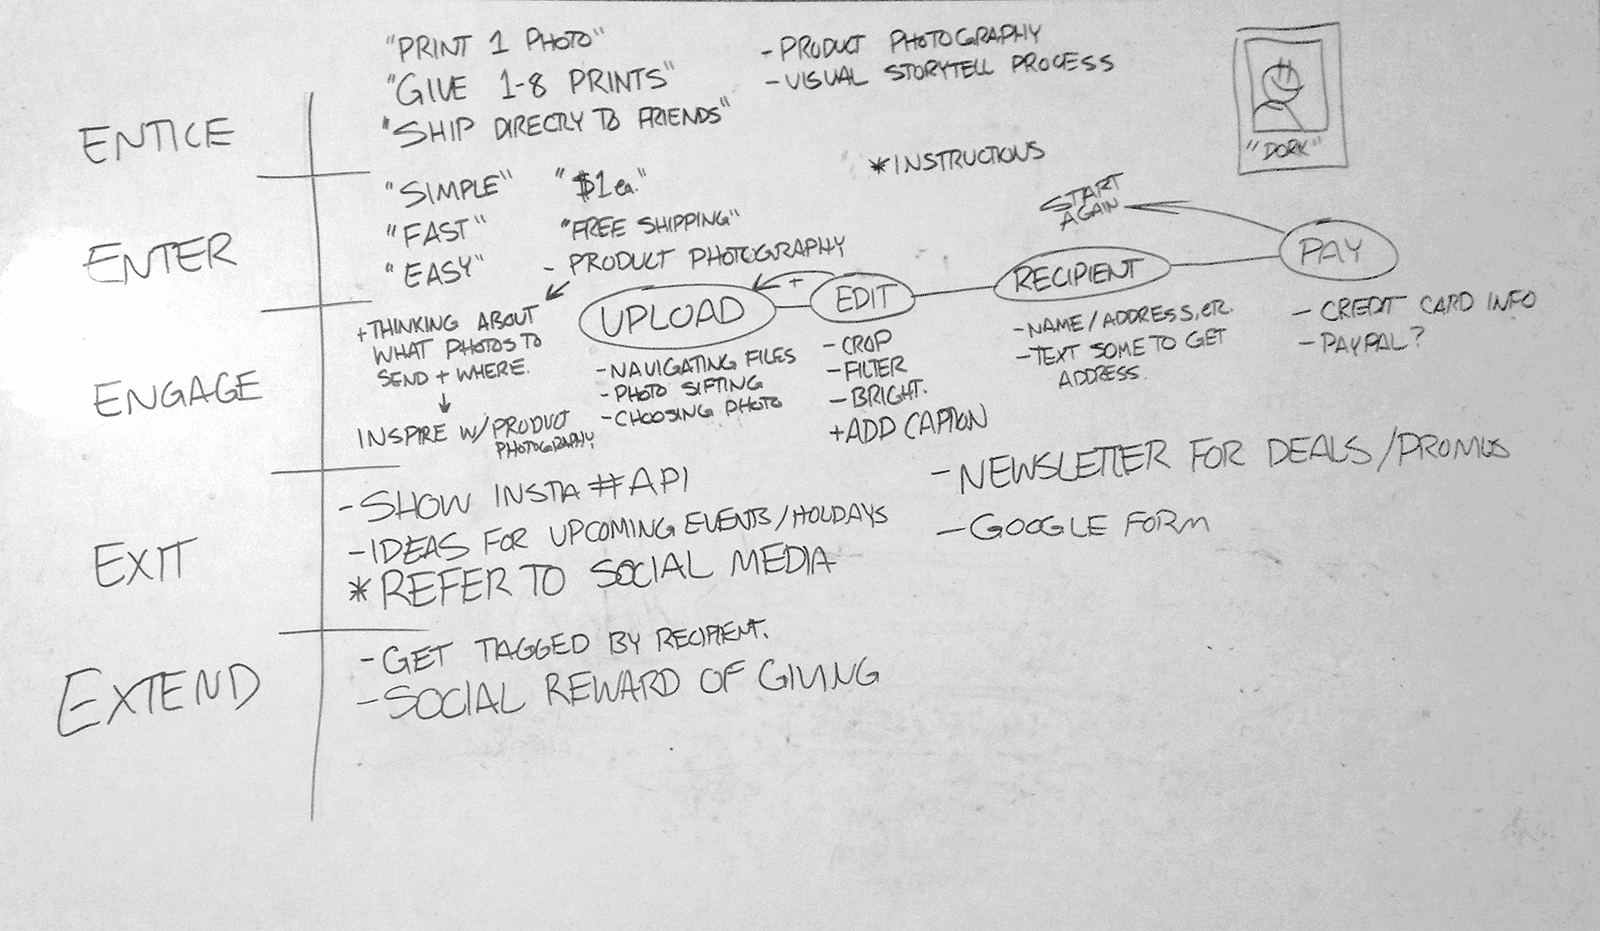 ENTICE
"PRINT 1 PHOTO"
"GIVE 1-8 PRINTS"
"SHIP DIRECTLY TO FRIENDS"
- PRODUCT PHOTOGRAPHY
- VISUAL STORYTELL PROCESS
"DORK"
ENTER
"SIMPLE" "$1 ea."
"FAST" "FREE SHIPPING"
"EASY" - PRODUCT PHOTOGRAPHY
*INSTRUCTIONS
START
AGAIN
ENGAGE
+ THINKING ABOUT
WHAT PHOTOS TO
SEND + WHERE.
INSPIRE W/ PRODUCT
PHOTOGRAPHY
UPLOAD
- NAVIGATING FILES
- PHOTO SIFTING
- CHOOSING PHOTO
+
EDIT
- CROP
- FILTER
- BRIGHT.
+ ADD CAPTION
RECIPIENT
- NAME / ADDRESS, ETC.
- TEXT SOME TO GET
ADDRESS.
PAY
- CREDIT CARD INFO
- PAYPAL?
EXIT
- SHOW INSTA # API
- IDEAS FOR UPCOMING EVENTS/HOLIDAYS
* REFER TO SOCIAL MEDIA
- NEWSLETTER FOR DEALS / PROMOS
- GOOGLE FORM
EXTEND
- GET TAGGED BY RECIPIENT.
- SOCIAL REWARD OF GIVING